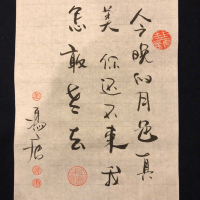 今晚的月色真
美 你还不来我
怎敢老去
馮唐